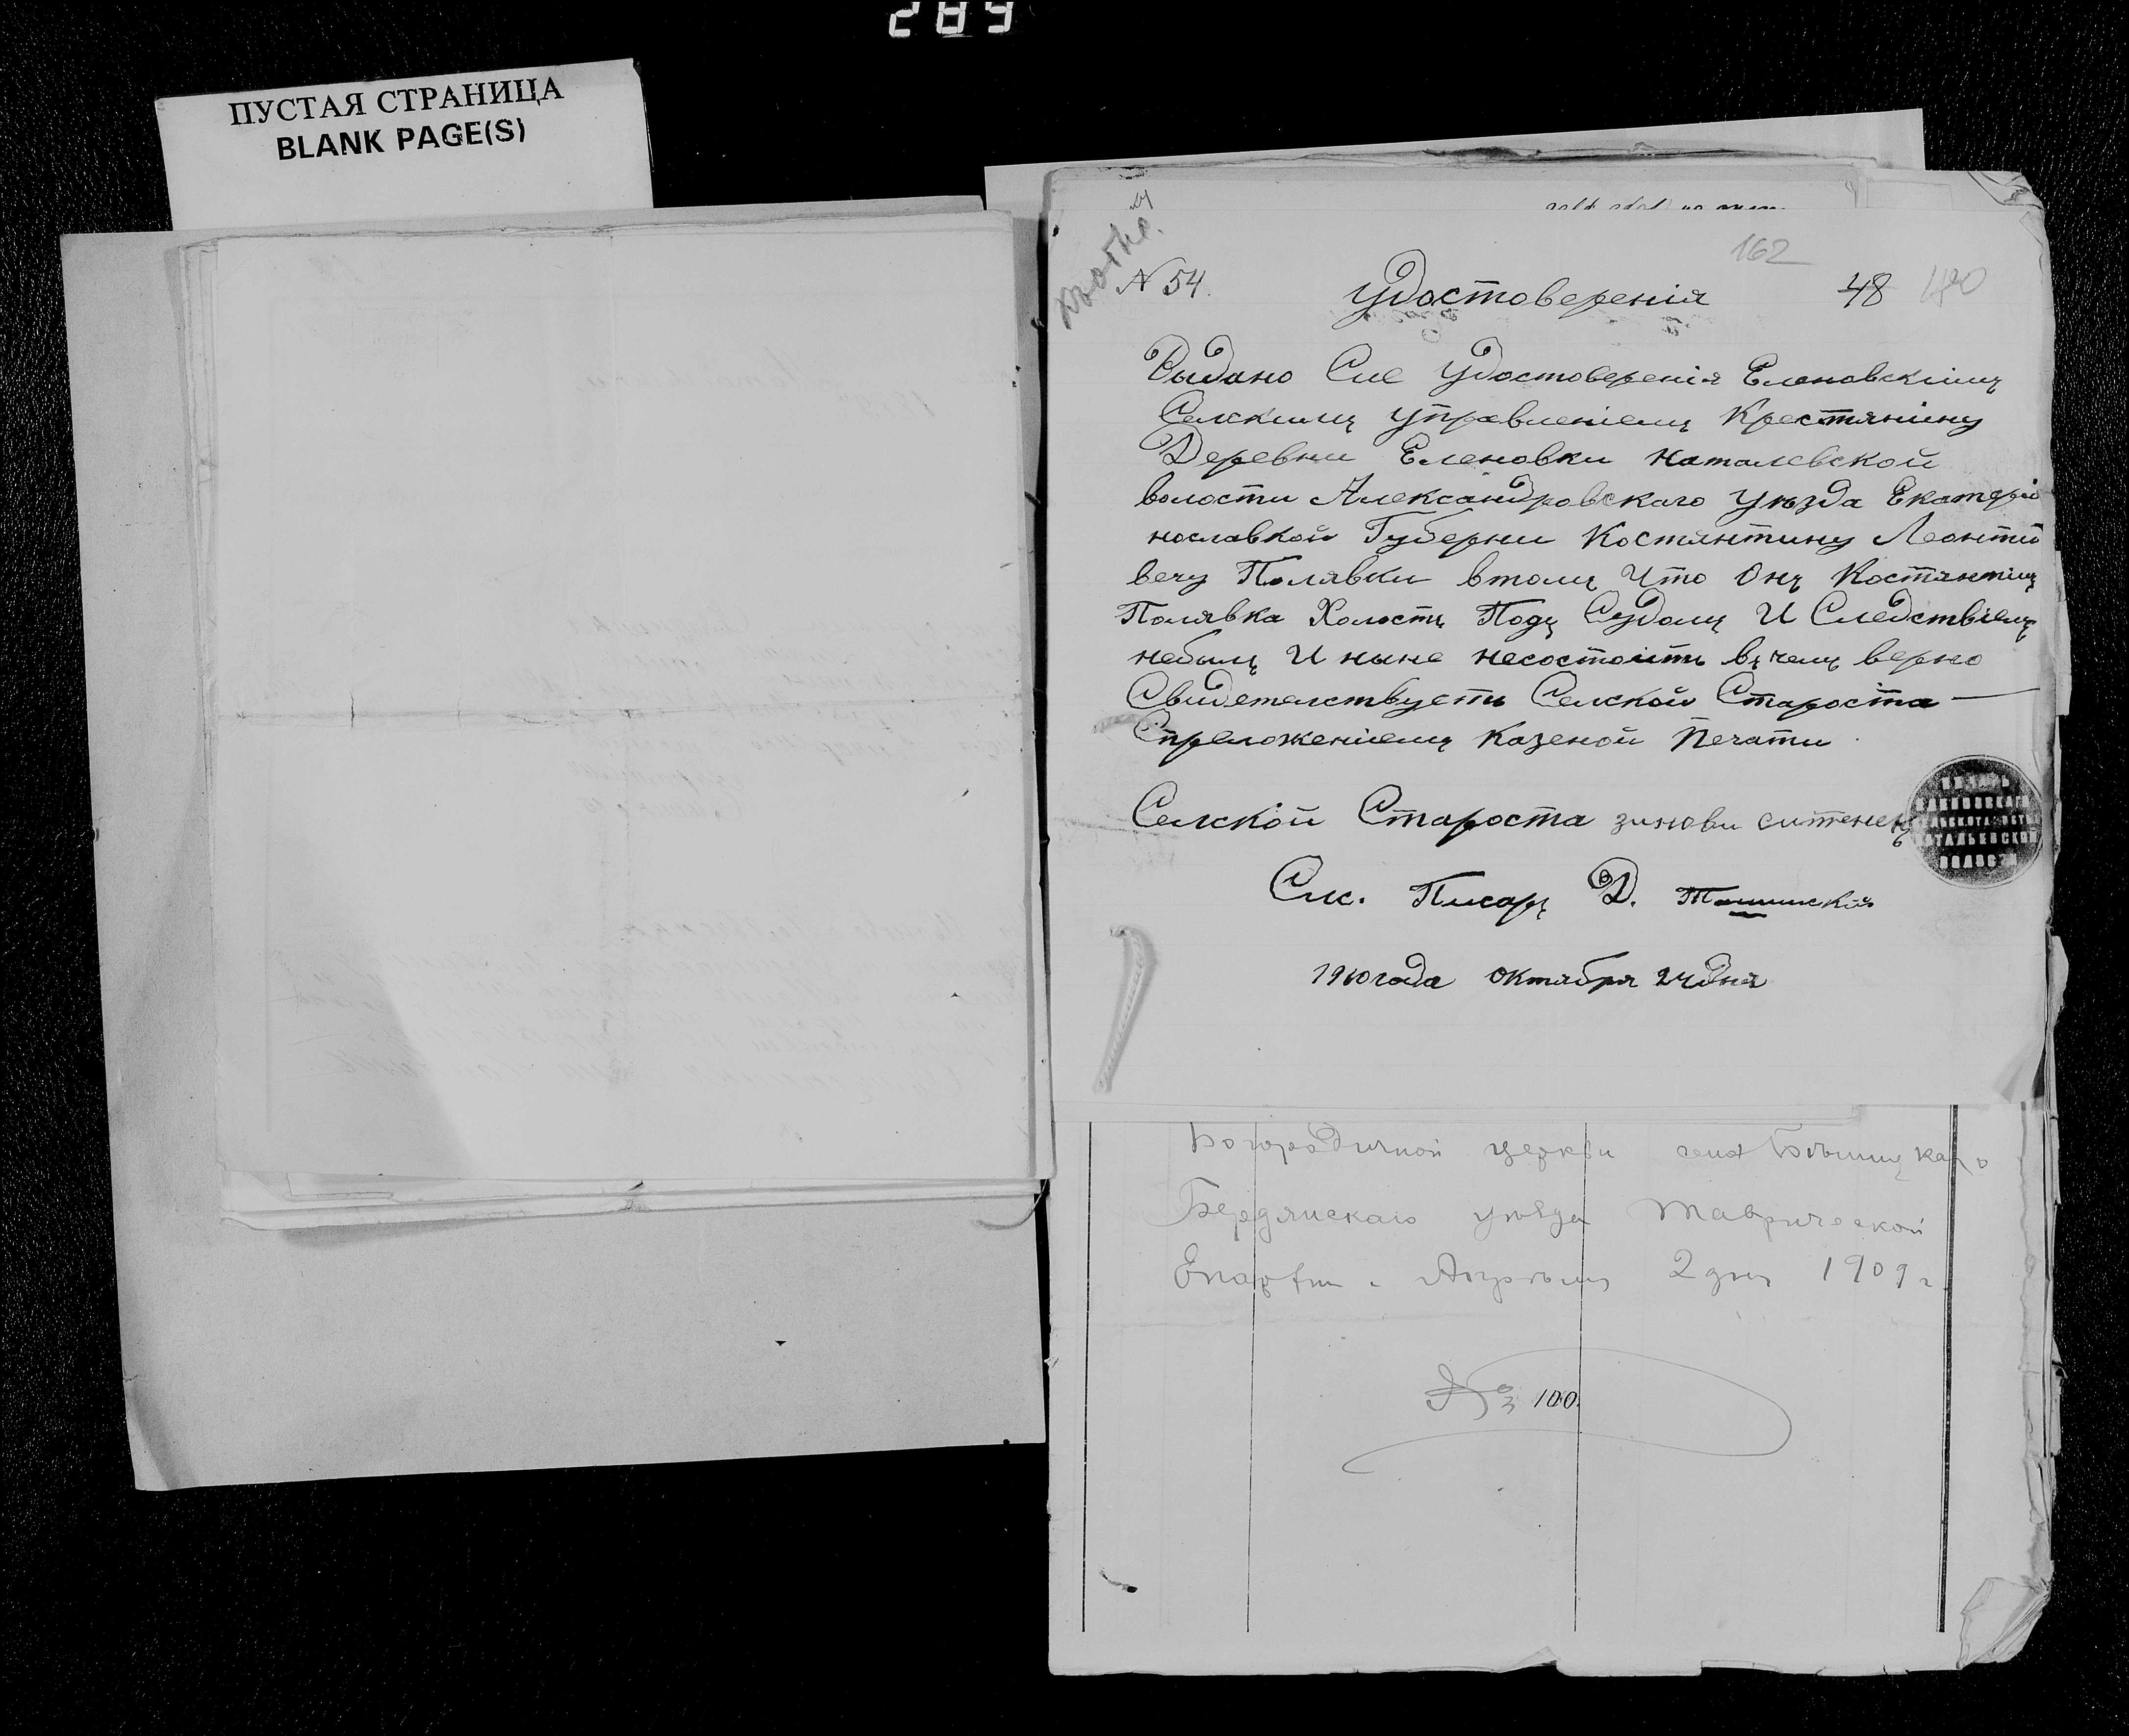 289
ПУСТАЯ СТРАНИЦА
BLANK PAGE(S)
162
N 54.
удостоверенія
48
Выдано Сие Удостоверенія Еленовскимъ
Селскимъ управленіемъ Крестянину
Деревни Еленовки Наталевской
волости Александровскаго Уѣзда Екатери
нославкой Губерни Костянтину Леонтио
вечу Полявки втомъ Что Онъ Костянтинъ
Полявка Холостъ Подъ Судомъ И Следствіемъ
небылъ И ныне несостоитъ въ чемъ верно
Свидетелствуетъ Селской Староста —
Спреложеніемъ Казеной Печати
Селской Староста зинови ситенекъ
Сис. Писаръ Д.
1910 года Октября 24 дня
Богородичной церкви села
Бердянскаго уѣзда Таврической
Епархіи 2 дня 1909 г
100.